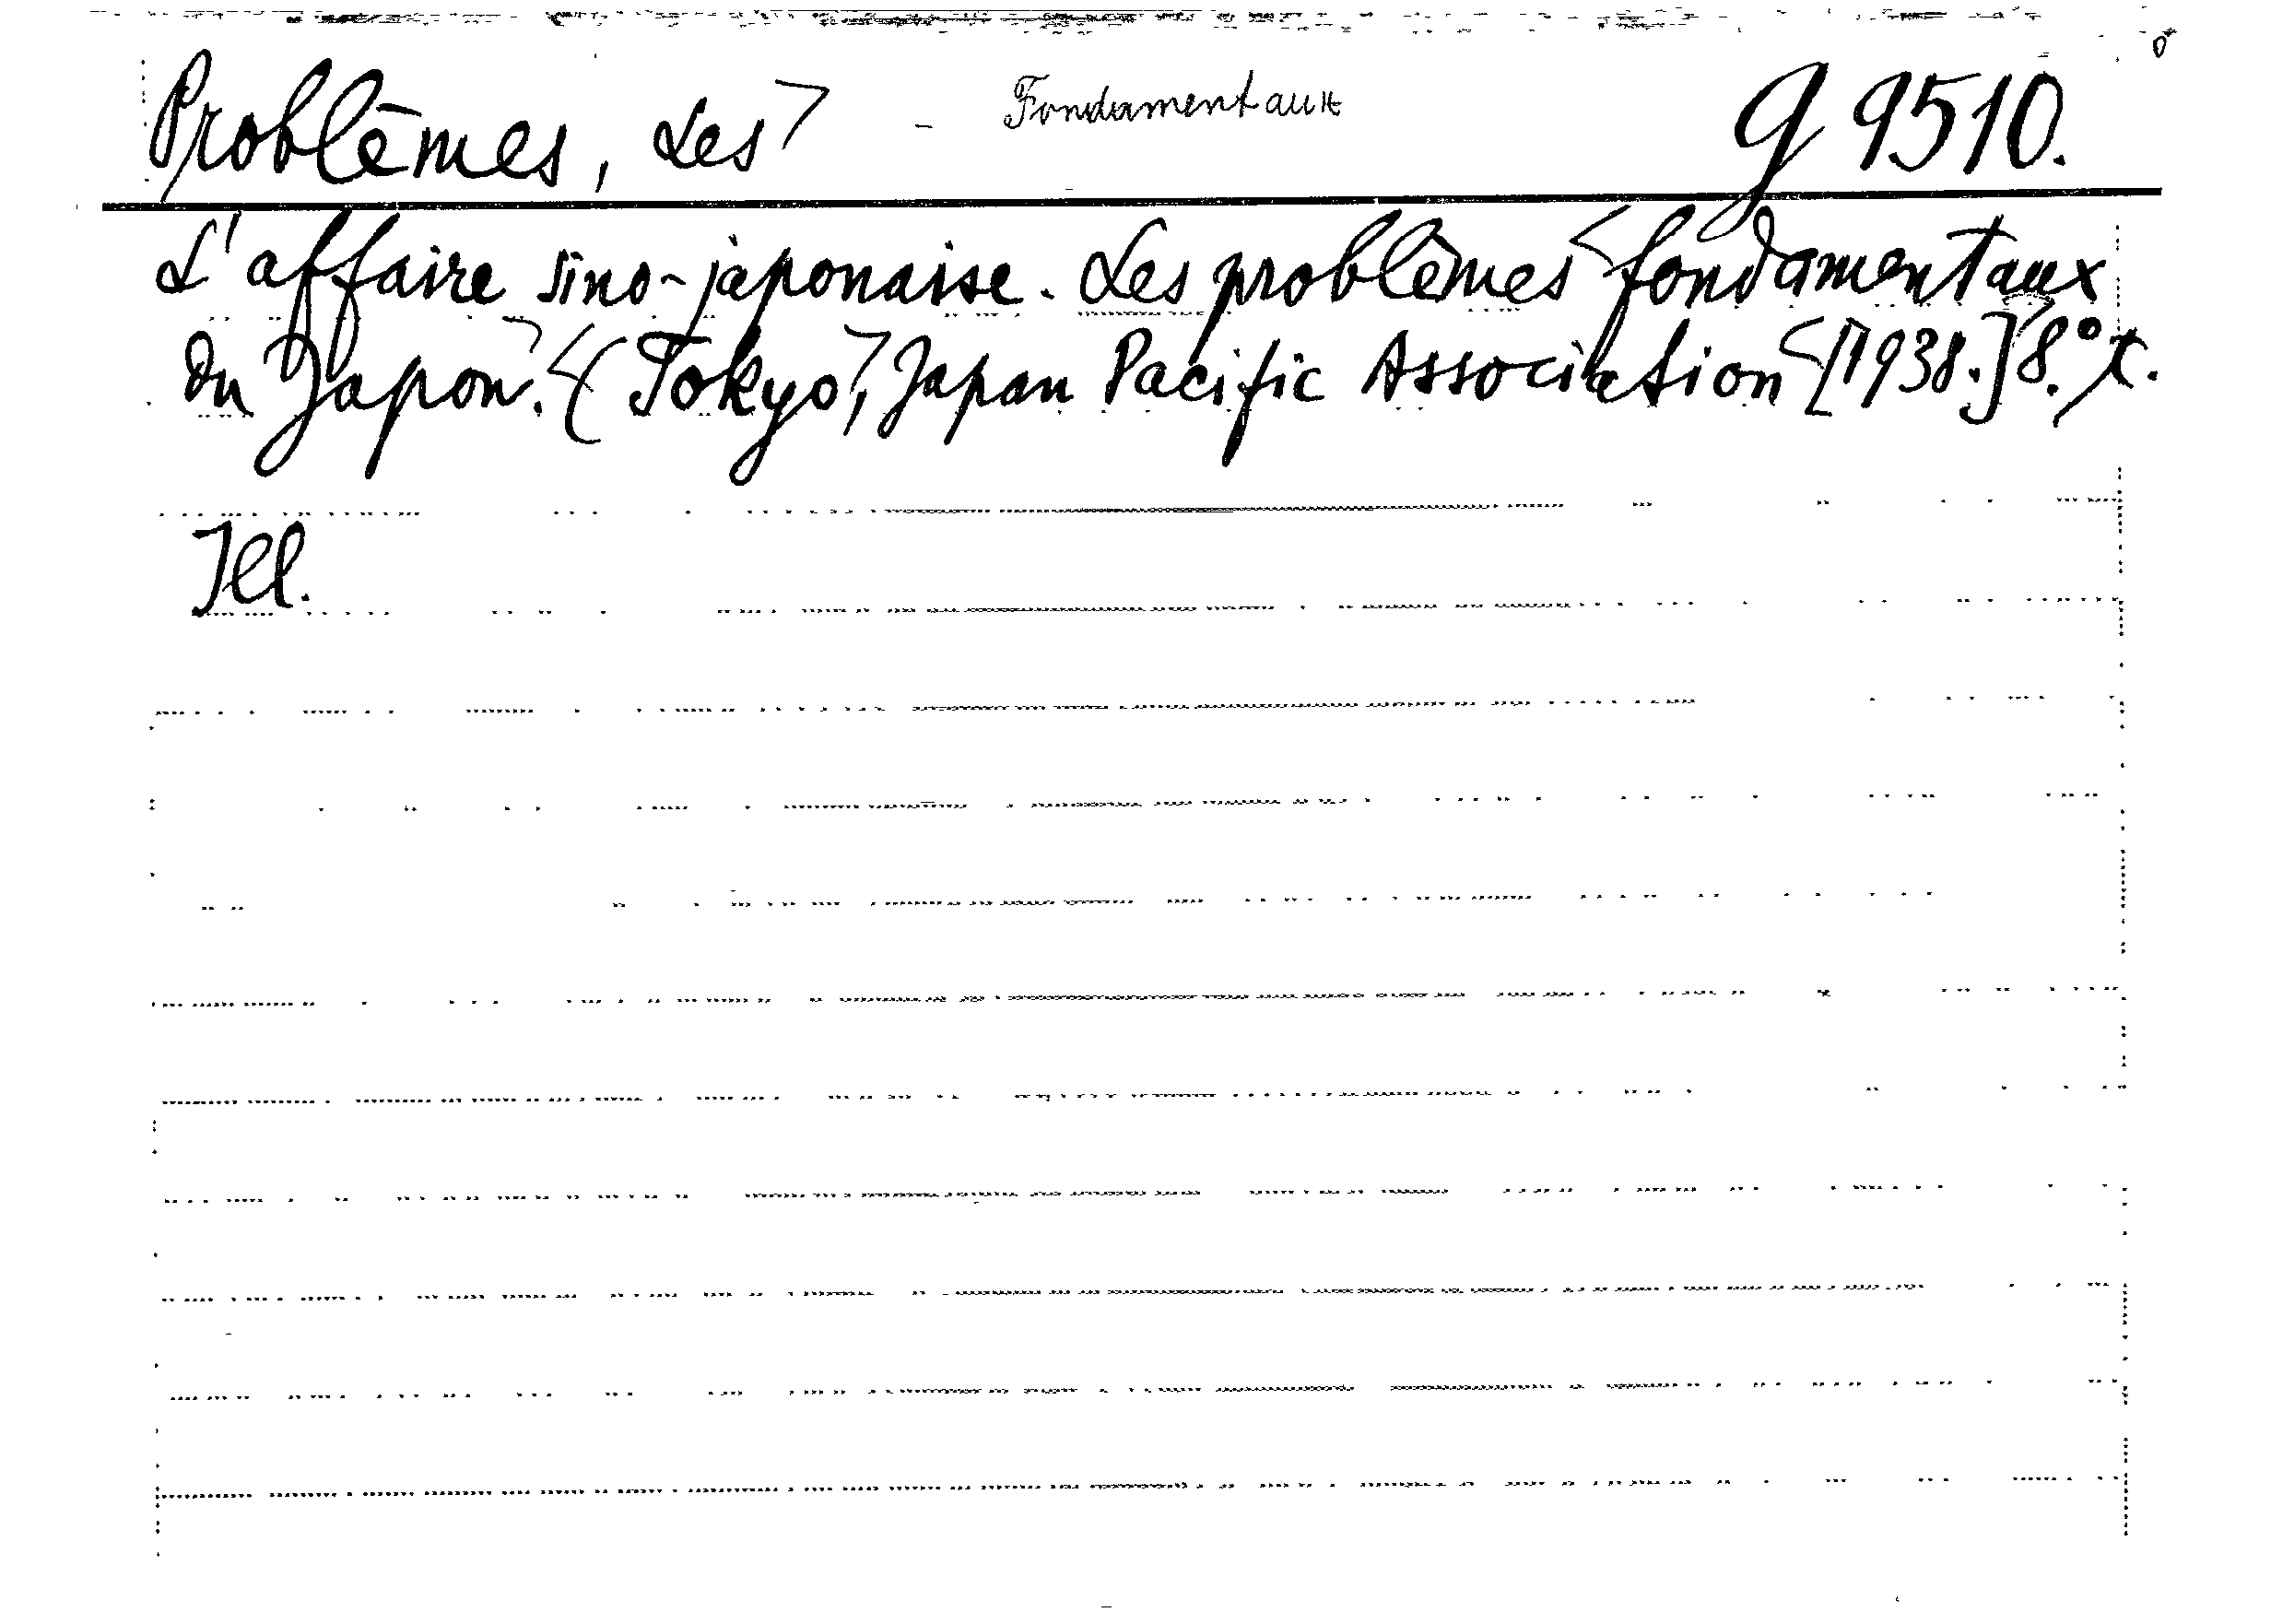 Problèmes, Les - Fondamentaux g 9510.
L'affaire sino-japonaise. Les problèmes fondamentaux
du Japon. (Tokyo, Japan Pacific Association [1938.] 8.° t.
Ill.